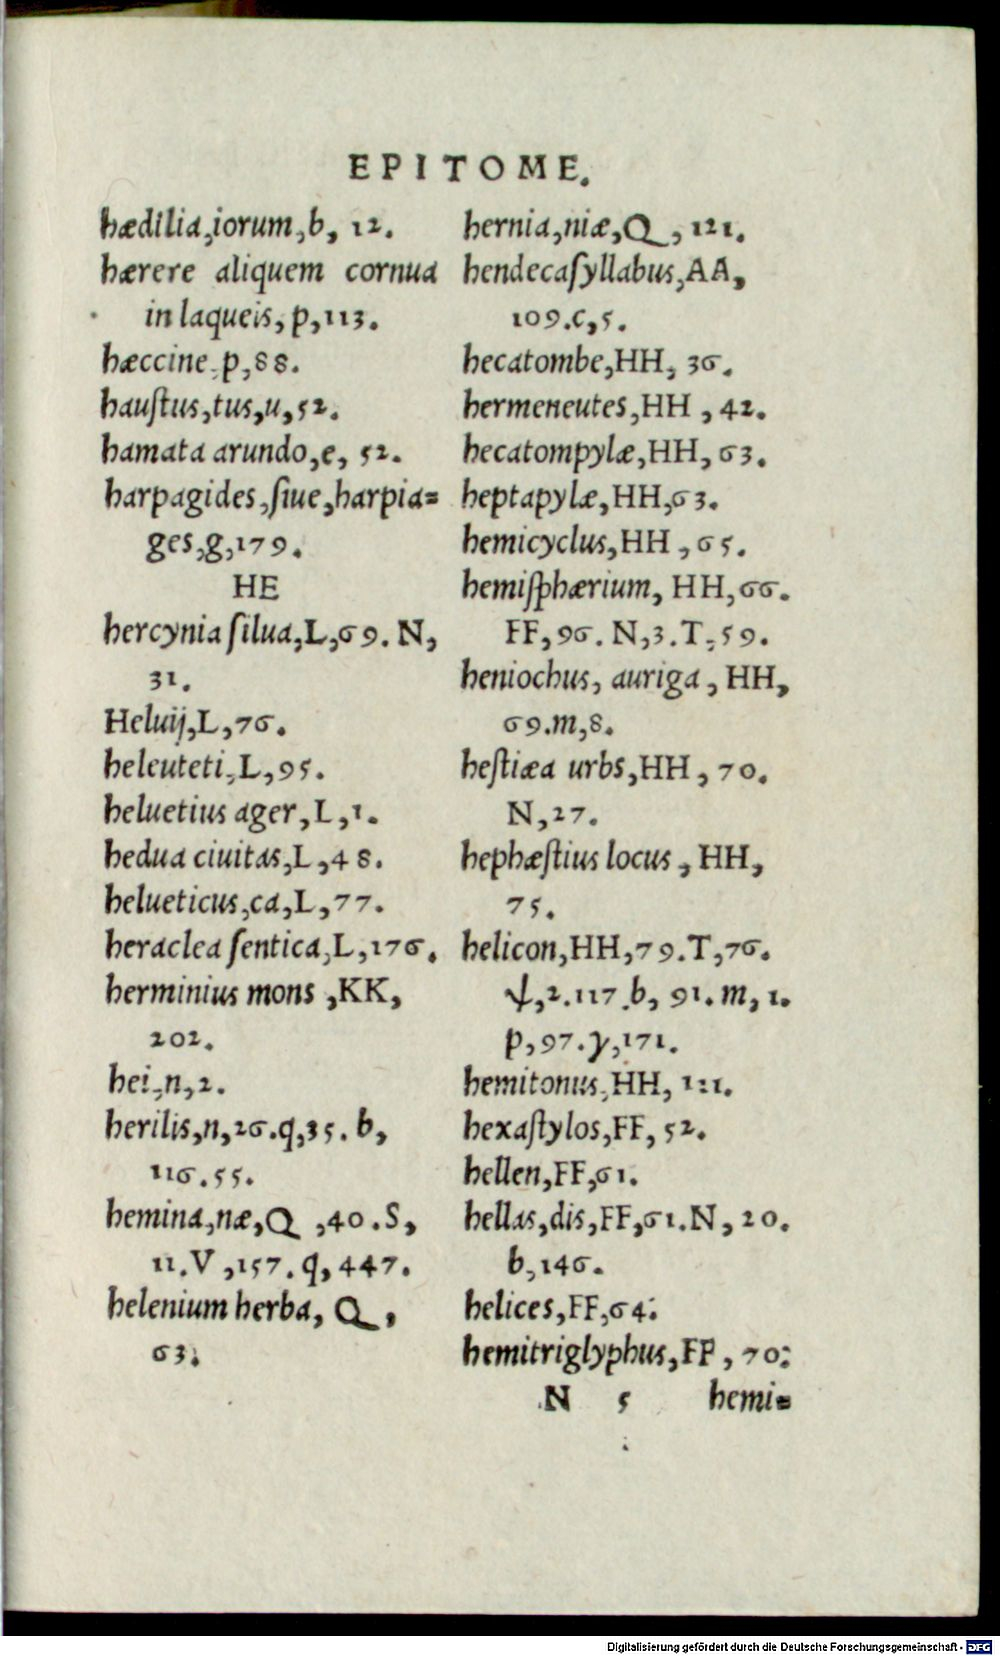 EPITOME.
hædilia,iorum,b, 12.
hærere aliquem cornua
in laqueis, p,113.
hæccine, p,88.
hauſtus,tus,u,52.
hamata arundo,e, 52.
harpagides,ſiue,harpia=
ges,g,179.
HE
hercynia ſilua,L,69. N,
31.
Heluij,L,76.
heleuteti,L,95.
heluetius ager,L,1.
hedua ciuitas,L,48.
helueticus,ca,L,77.
heraclea ſentica,L,176.
herminius mons ,KK,
202.
hei,n,2.
herilis,n,26.q,35. b,
116.55.
hemina,næ,Q ,40.S,
11.V ,157.q,447.
helenium herba, Q,
63.
hernia,niæ,Q, 121.
hendecaſyllabus,AA,
109.c,5.
hecatombe,HH, 36.
hermeneutes,HH ,42.
hecatompylæ,HH,63.
heptapylæ,HH,63.
hemicyclus,HH ,65.
hemiſphærium, HH,66.
FF,96. N,3.T,59.
heniochus, auriga, HH,
69.m,8.
heſtiæa urbs,HH, 70.
N,27.
hephæſtius locus, HH,
75.
helicon,HH,79.T,76.
ψ,2.117.b, 91.m,1.
p,97.γ,171.
hemitonus,HH, 121.
hexaſtylos,FF, 52.
hellen,FF,61.
hellas,dis,FF,61.N, 20.
b,146.
helices,FF,64.
hemitriglyphus,FF, 70:
N 5 hemi=
Digitalisierung gefördert durch die Deutsche Forschungsgemeinschaft - DFG